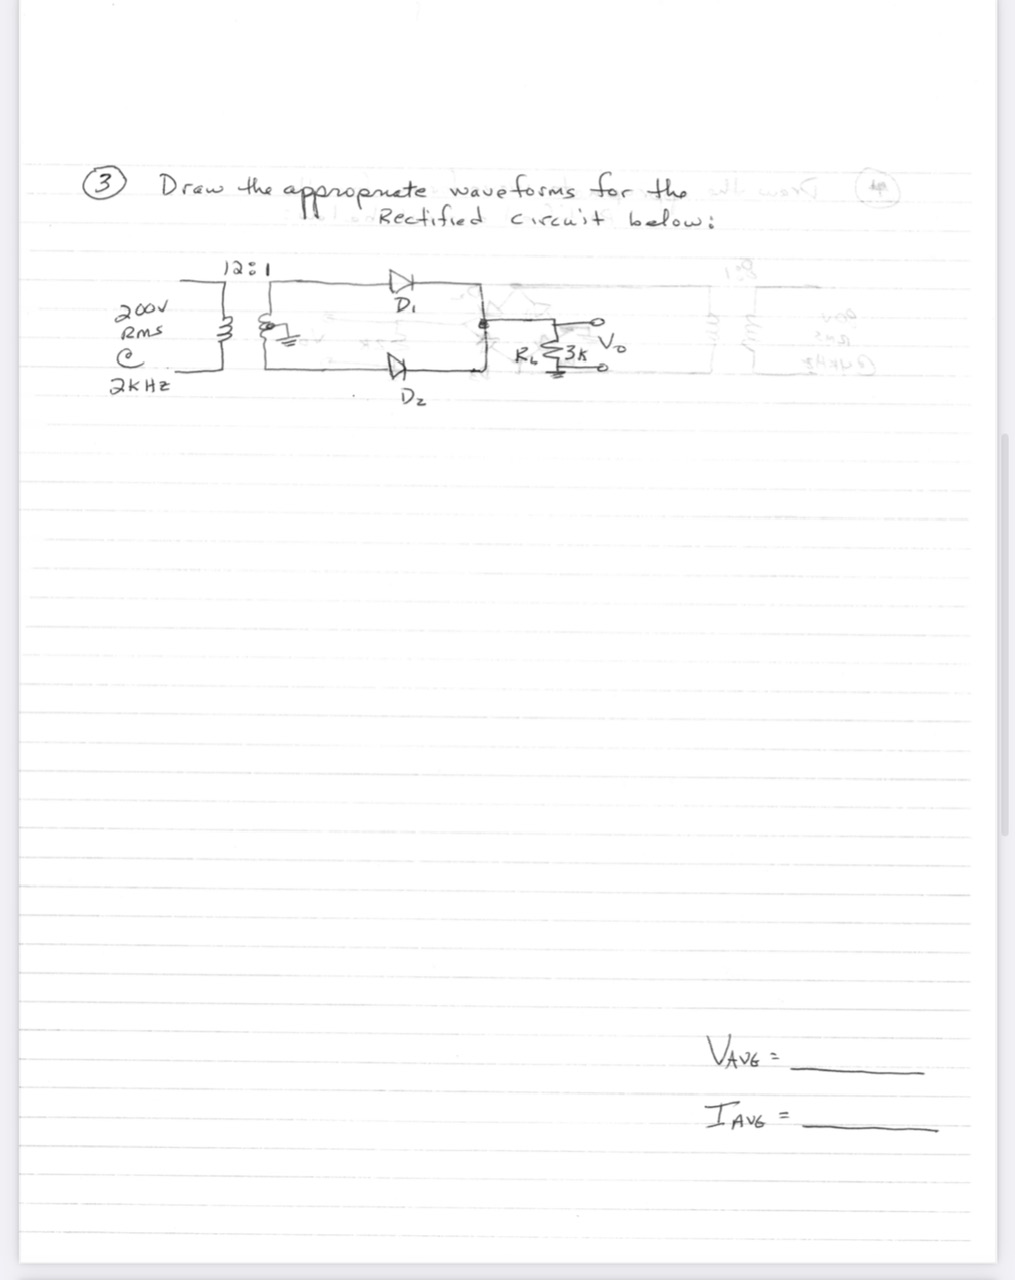 3 Draw the appropriate waveforms for the
Rectified circuit below:
12:1
200V
RMS
@
2KHz
D1
D2
RL 3K
Vo
VAVG =
IAVG =